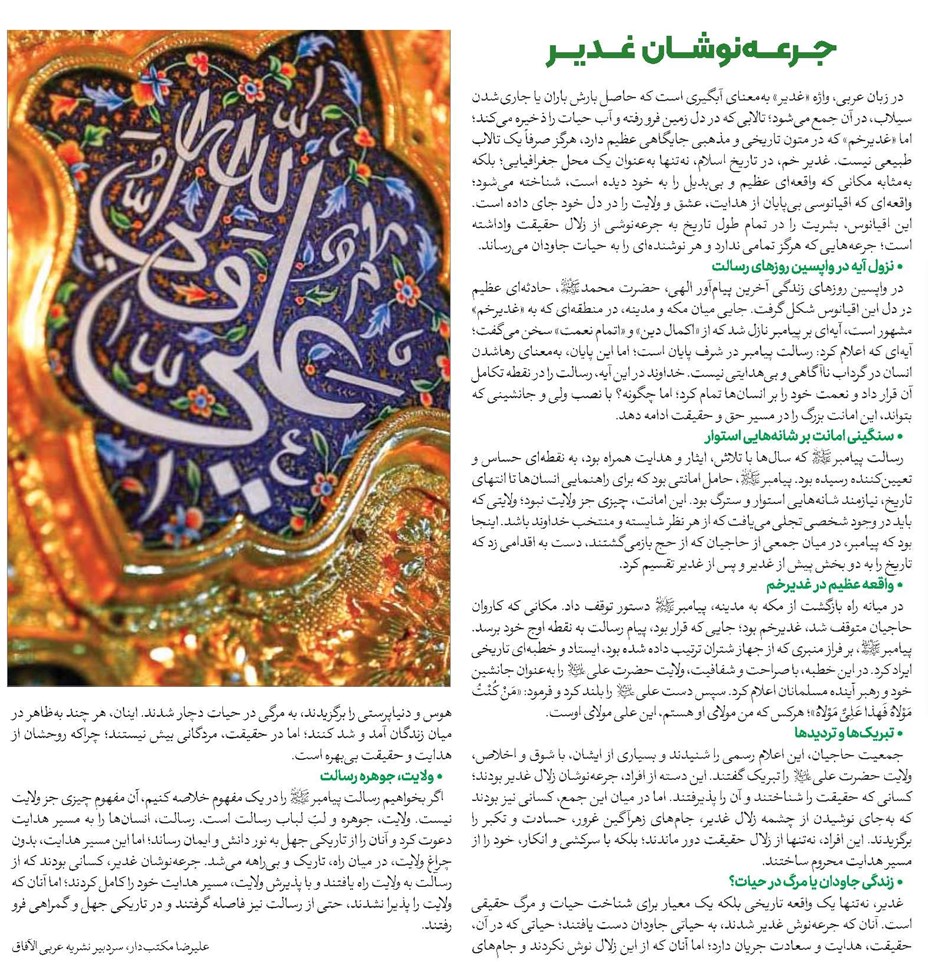 جرعه‌نوشان غدیر
در زبان عربی، واژه «غدیر» به‌معنای آبگیری است که حاصل بارش باران یا جاری‌شدن
سیلاب، در آن جمع می‌شود؛ تالابی که در دل زمین فرو رفته و آب حیات را ذخیره می‌کند؛
اما «غدیرخم» که در متون تاریخی و مذهبی جایگاهی عظیم دارد، هرگز صرفاً یک تالاب
طبیعی نیست. غدیر خم، در تاریخ اسلام، نه‌تنها به‌عنوان یک محل جغرافیایی؛ بلکه
به‌مثابه مکانی که واقعه‌ای عظیم و بی‌بدیل را به خود دیده است، شناخته می‌شود؛
واقعه‌ای که اقیانوسی بی‌پایان از هدایت، عشق و ولایت را در دل خود جای داده است.
این اقیانوس، بشریت را در تمام طول تاریخ به جرعه‌نوشی از زلال حقیقت واداشته
است؛ جرعه‌هایی که هرگز تمامی ندارد و هر نوشنده‌ای را به حیات جاودان می‌رساند.
• نزول آیه در واپسین روزهای رسالت
در واپسین روزهای زندگی آخرین پیام‌آور الهی، حضرت محمدﷺ، حادثه‌ای عظیم
در دل این اقیانوس شکل گرفت. جایی میان مکه و مدینه، در منطقه‌ای که به «غدیرخم»
مشهور است، آیه‌ای بر پیامبر نازل شد که از «اکمال دین» و «اتمام نعمت» سخن می‌گفت؛
آیه‌ای که اعلام کرد: رسالت پیامبر در شرف پایان است؛ اما این پایان، به‌معنای رهاشدن
انسان در گرداب ناآگاهی و بی‌هدایتی نیست. خداوند در این آیه، رسالت را در نقطه تکامل
آن قرار داد و نعمت خود را بر انسان‌ها تمام کرد؛ اما چگونه؟ با نصب ولی و جانشینی که
بتواند، این امانت بزرگ را در مسیر حق و حقیقت ادامه دهد.
• سنگینی امانت بر شانه‌هایی استوار
رسالت پیامبرﷺ که سال‌ها با تلاش، ایثار و هدایت همراه بود، به نقطه‌ای حساس و
تعیین‌کننده رسیده بود. پیامبرﷺ، حامل امانتی بود که برای راهنمایی انسان‌ها تا انتهای
تاریخ، نیازمند شانه‌هایی استوار و سترگ بود. این امانت، چیزی جز ولایت نبود؛ ولایتی که
باید در وجود شخصی تجلی می‌یافت که از هر نظر شایسته و منتخب خداوند باشد. اینجا
بود که پیامبر، در میان جمعی از حاجیان که از حج بازمی‌گشتند، دست به اقدامی زد که
تاریخ را به دو بخش پیش از غدیر و پس از غدیر تقسیم کرد.
• واقعه عظیم در غدیرخم
در میانه راه بازگشت از مکه به مدینه، پیامبرﷺ دستور توقف داد. مکانی که کاروان
حاجیان متوقف شد، غدیرخم بود؛ جایی که قرار بود، پیام رسالت به نقطه اوج خود برسد.
پیامبرﷺ، بر فراز منبری که از جهاز شتران ترتیب داده شده بود، ایستاد و خطبه‌ای تاریخی
ایراد کرد. در این خطبه، با صراحت و شفافیت، ولایت حضرت علی؏ را به‌عنوان جانشین
خود و رهبر آینده مسلمانان اعلام کرد. سپس دست علی؏ را بلند کرد و فرمود: «مَنْ کُنْتُ
مَوْلاهُ فَهذا عَلِیٌّ مَوْلاهُ»؛ هرکس که من مولای او هستم، این علی مولای اوست.
• تبریک‌ها و تردیدها
جمعیت حاجیان، این اعلام رسمی را شنیدند و بسیاری از ایشان، با شوق و اخلاص،
ولایت حضرت علی؏ را تبریک گفتند. این دسته از افراد، جرعه‌نوشان زلال غدیر بودند؛
کسانی که حقیقت را شناختند و آن را پذیرفتند. اما در میان این جمع، کسانی نیز بودند
که به‌جای نوشیدن از چشمه زلال غدیر، جام‌های زهرآگین غرور، حسادت و تکبر را
برگزیدند. این افراد، نه‌تنها از زلال حقیقت دور ماندند؛ بلکه با سرکشی و انکار، خود را از
مسیر هدایت محروم ساختند.
• زندگی جاودان یا مرگ در حیات؟
غدیر، نه‌تنها یک واقعه تاریخی بلکه یک معیار برای شناخت حیات و مرگ حقیقی
است. آنان که جرعه‌نوش غدیر شدند، به حیاتی جاودان دست یافتند؛ حیاتی که در آن،
حقیقت، هدایت و سعادت جریان دارد؛ اما آنان که از این زلال نوش نکردند و جام‌های
هوس و دنیاپرستی را برگزیدند، به مرگی در حیات دچار شدند. اینان، هر چند به‌ظاهر در
میان زندگان آمد و شد کنند؛ اما در حقیقت، مردگانی بیش نیستند؛ چراکه روحشان از
هدایت و حقیقت بی‌بهره است.
• ولایت، جوهره رسالت
اگر بخواهیم رسالت پیامبرﷺ را در یک مفهوم خلاصه کنیم، آن مفهوم چیزی جز ولایت
نیست. ولایت، جوهره و لبّ لباب رسالت است. رسالت، انسان‌ها را به مسیر هدایت
دعوت کرد و آنان را از تاریکی جهل به نور دانش و ایمان رساند؛ اما این مسیر هدایت، بدون
چراغ ولایت، در میان راه، تاریک و بی‌راهه می‌شد. جرعه‌نوشان غدیر، کسانی بودند که از
رسالت به ولایت راه یافتند و با پذیرش ولایت، مسیر هدایت خود را کامل کردند؛ اما آنان که
ولایت را پذیرا نشدند، حتی از رسالت نیز فاصله گرفتند و در تاریکی جهل و گمراهی فرو
رفتند.
علیرضا مکتب‌دار، سردبیر نشریه عربی الآفاق
علی ولی الله